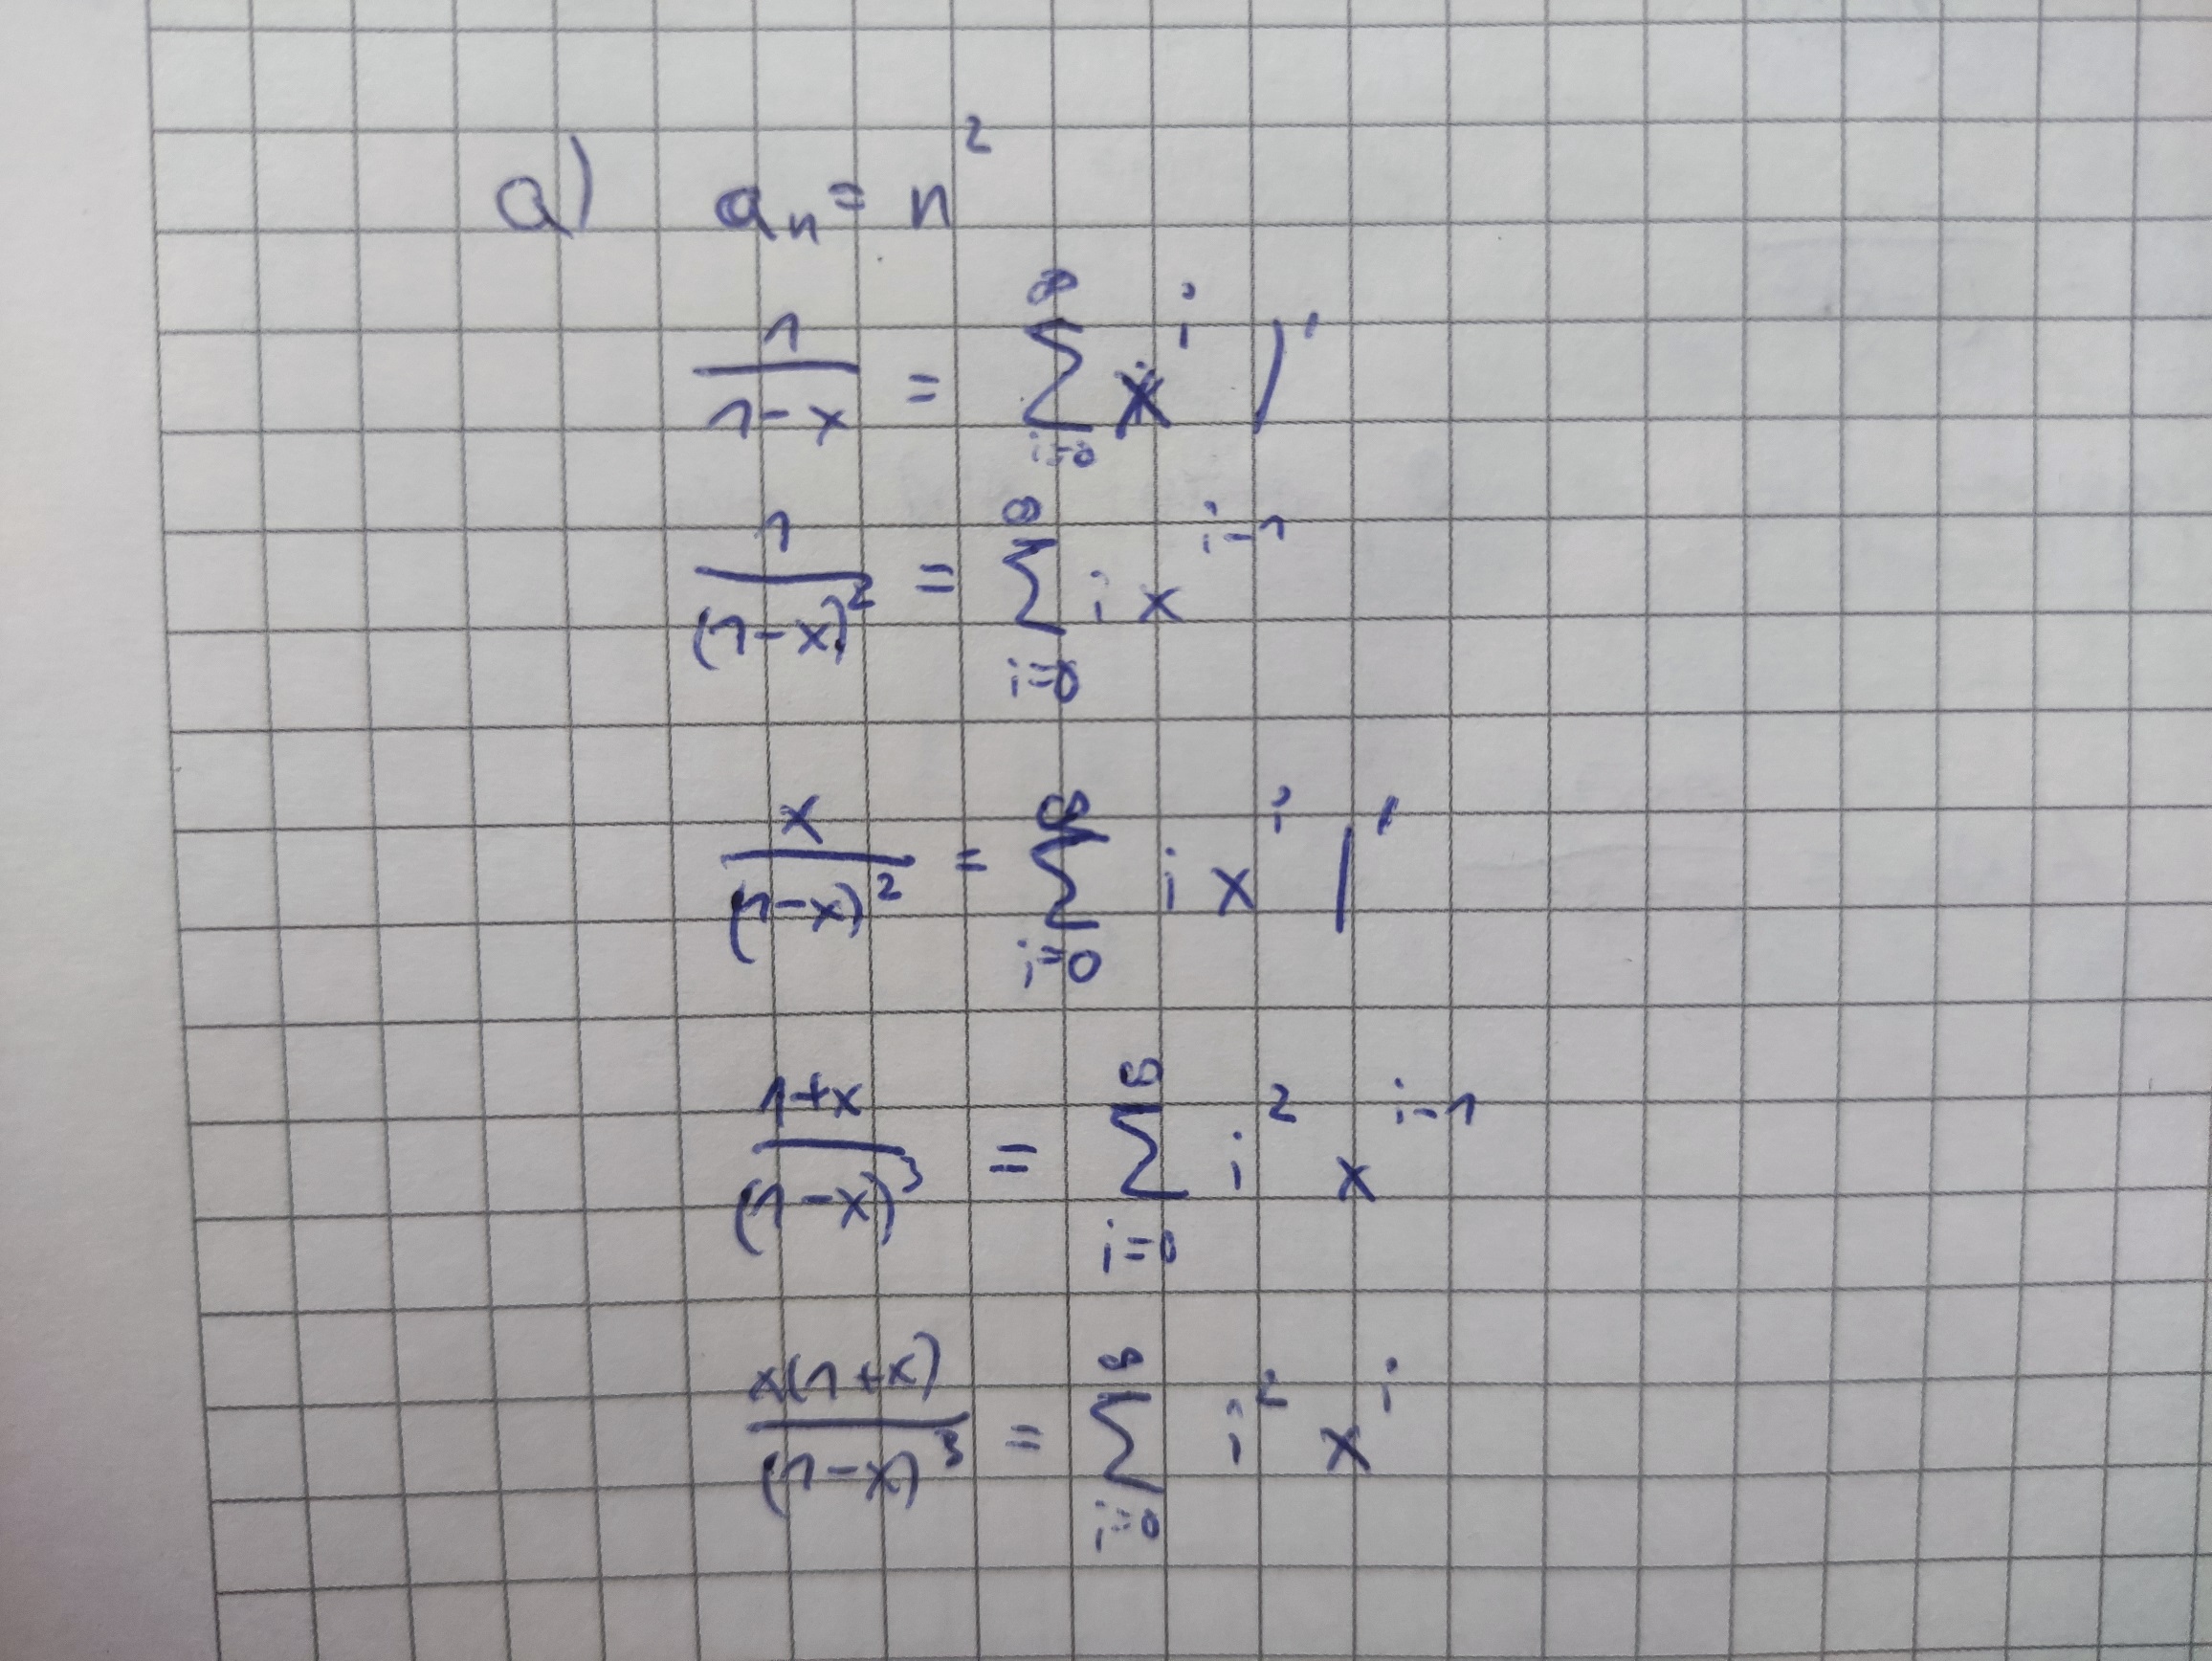 a) aₙ = n²
1/(1-x) = ∑_{i=0}^{∞} xⁱ |'
1/(1-x)² = ∑_{i=0}^{∞} i x^{i-1}
x/(1-x)² = ∑_{i=0}^{∞} i xⁱ |'
(1+x)/(1-x)³ = ∑_{i=0}^{∞} i² x^{i-1}
x(1+x)/(1-x)³ = ∑_{i=0}^{∞} i² xⁱ